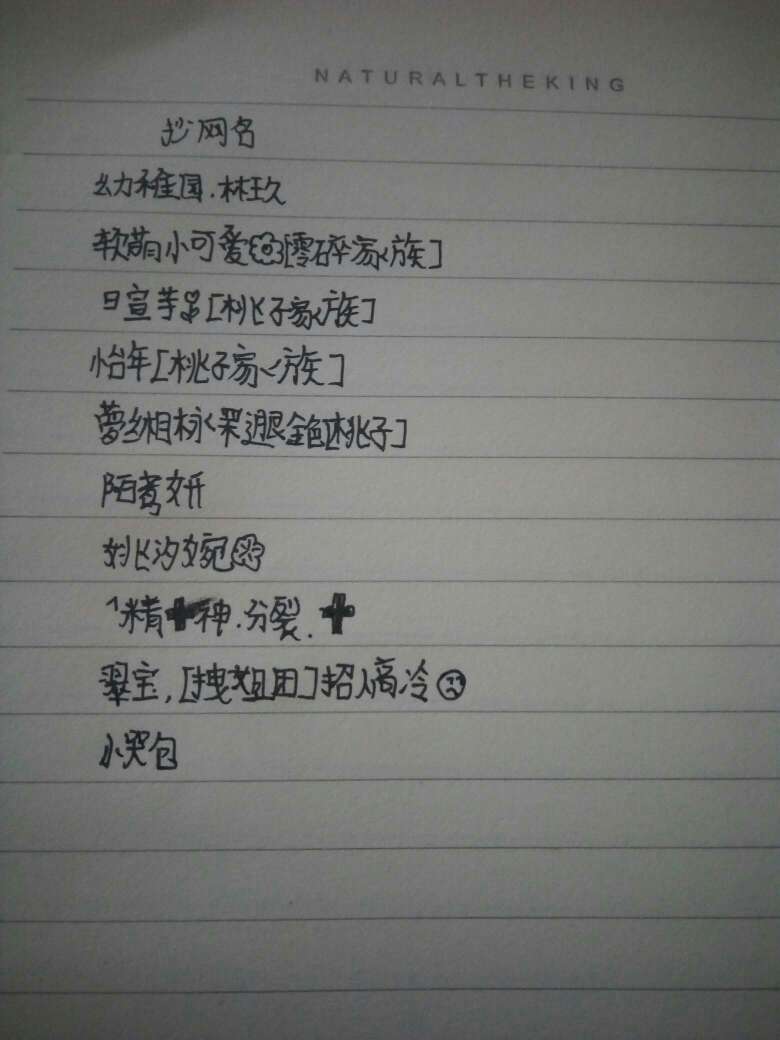 NATURALTHEKING
抄网名
幼稚园.林玖
软萌小可爱[零碎家族]
日宣芋[桃子家族]
怡年[桃子家族]
梦纲桃子]
陌鸢妍
姚汐婉
精神.分裂.
翠宝,[拽姐团]招人高冷
小哭包